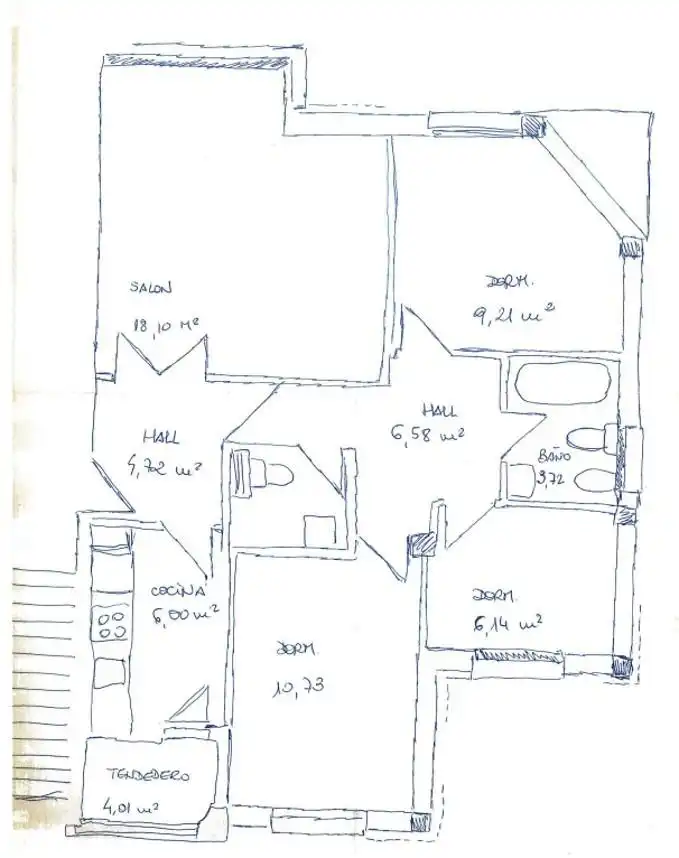 SALON
18,10 M²
DORM.
9,21 m²
HALL
6,58 m²
HALL
4,72 m²
BAÑO
3,72
COCINA
6,00 m²
DORM.
6,14 m²
DORM.
10,73
TENDEDERO
4,01 m²